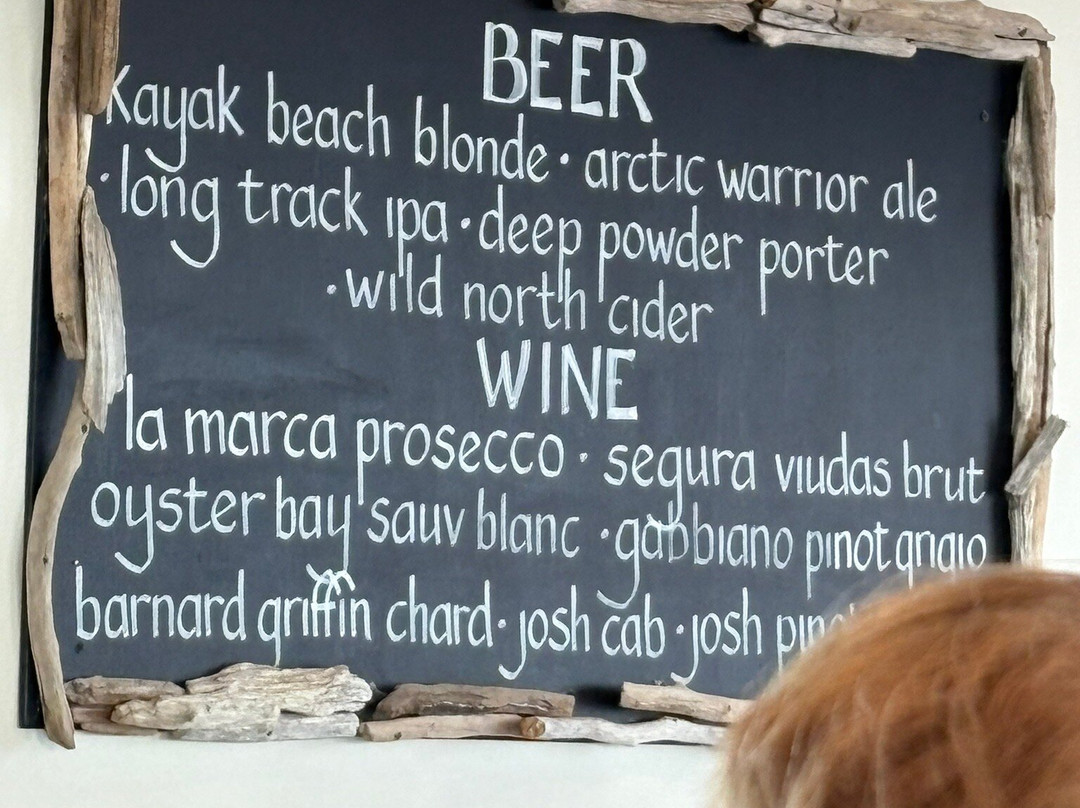 BEER
Kayak beach blonde · arctic warrior ale
· long track ipa · deep powder porter
· wild north cider
WINE
la marca prosecco · segura viudas brut
oyster bay sauv blanc · gabbiano pinot grigio
barnard griffin chard · josh cab · josh